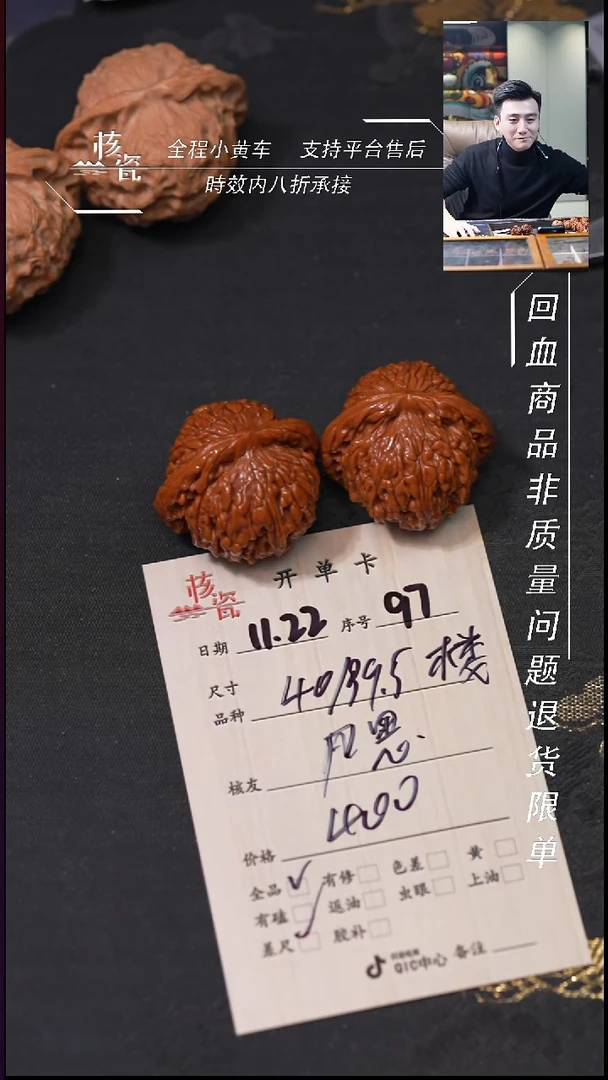 核瓷
全程小黄车 支持平台售后
時效内八折承接
回血商品非质量问题退货限单
核瓷 开单卡
日期 11.22 序号 97
尺寸 40/39.5 楼
品种
核友
价格 400
全品 有修 色差 黄
有磕 返油 虫眼 上油
差尺 胶补
QIC中心 备注